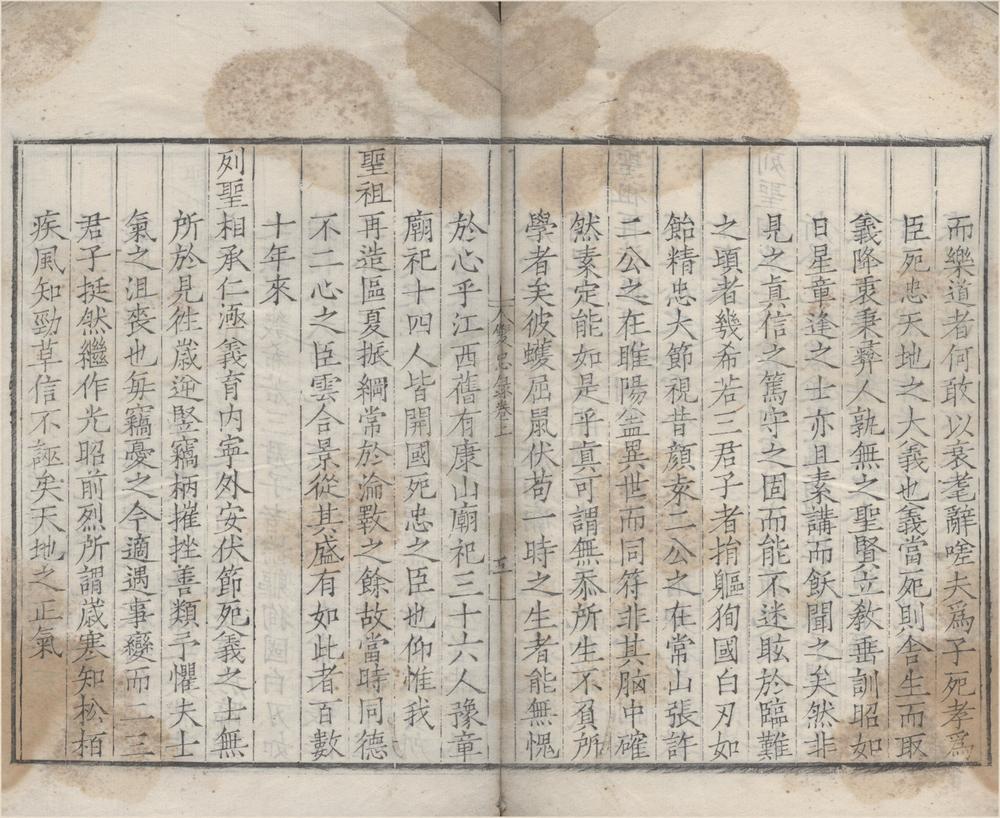 而樂道者何敢以衰耄辭嗟夫爲子死孝爲
臣死忠天地之大義也義當死則舍生而取
義降衷秉彝人孰無之聖賢立教垂訓昭如
日星童逢之士亦且素講而飫聞之矣然非
見之眞信之篤守之固而能不迷眩於臨難
之頃者幾希若三君子者捐軀狥國白刃如
飴精忠大節視昔顔𡊮二公之在常山張許
二公之在睢陽盖異世而同符非其胸中確
然素定能如是乎真可謂無忝所生不負所
學者矣彼蠖屈鼠伏苟一時之生者能無愧
雙忠録卷上
於心乎江西舊有康山廟祀三十六人豫章
廟祀十四人皆開國死忠之臣也仰惟我
聖祖再造區夏振綱常於淪斁之餘故當時同德
不二心之臣雲合景從其盛有如此者百數
十年來
列聖相承仁漚義育内寜外安伏節死義之士無
所於見徃歲逆豎竊柄摧挫善類予懼夫士
氣之沮喪也每竊憂之今適遇事變而二三
君子挺然繼作光昭前烈所謂歲寒知松栢
疾風知勁草信不誣矣天地之正氣